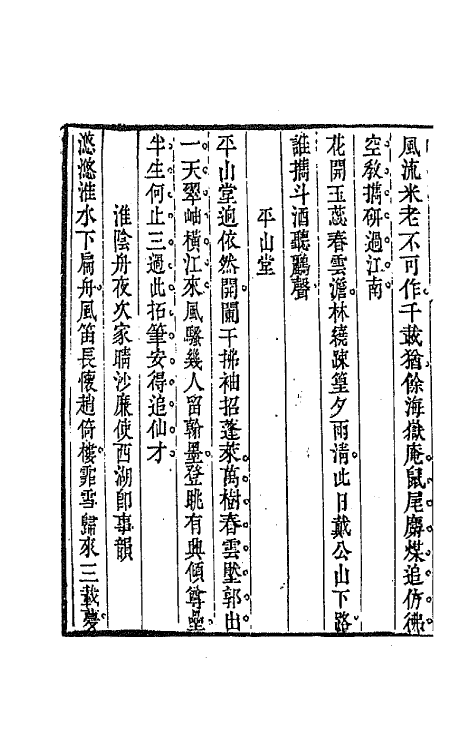 風流米老不可作千載猶餘海嶽庵鼠尾麝煤追仿彿
空教攜研過江南
花開玉蕊春雲澹林繞踈篁夕雨清此日戴公山下路
誰攜斗酒聽鸝聲
平山堂
平山堂迥依然開闌干拂袖招蓬萊萬樹春雲墅郭出
一天翠岫橫江來風騷幾人留翰墨登眺有興傾尊罍
半生何止三過此拓筆安得追仙才
淮陰舟夜次家晴沙廉使西湖卽事韻
悠悠淮水下扁舟風笛長懷趙倚樓霏雪歸來三載夢